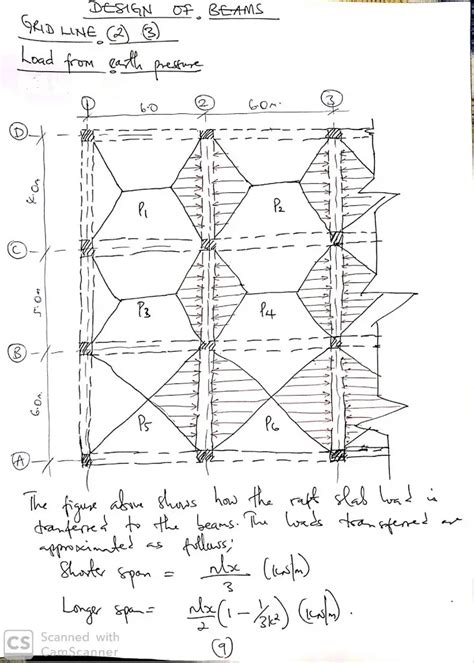 DESIGN OF BEAMS
GRID LINE (2) (3)
Load from earth pressure
1 2 3
6.0 6.0m
D
P1 P2
C
5.0m
P3 P4
B
6.0m
P5 P6
A
The figure above shows how the raft slab load is
transferred to the beams. The loads transferred are
approximated as follows;
Shorter span = nlx/3 (kN/m)
Longer span = nlx/2 (1 - 1/3k²) (kN/m).
(9)
CS Scanned with
CamScanner